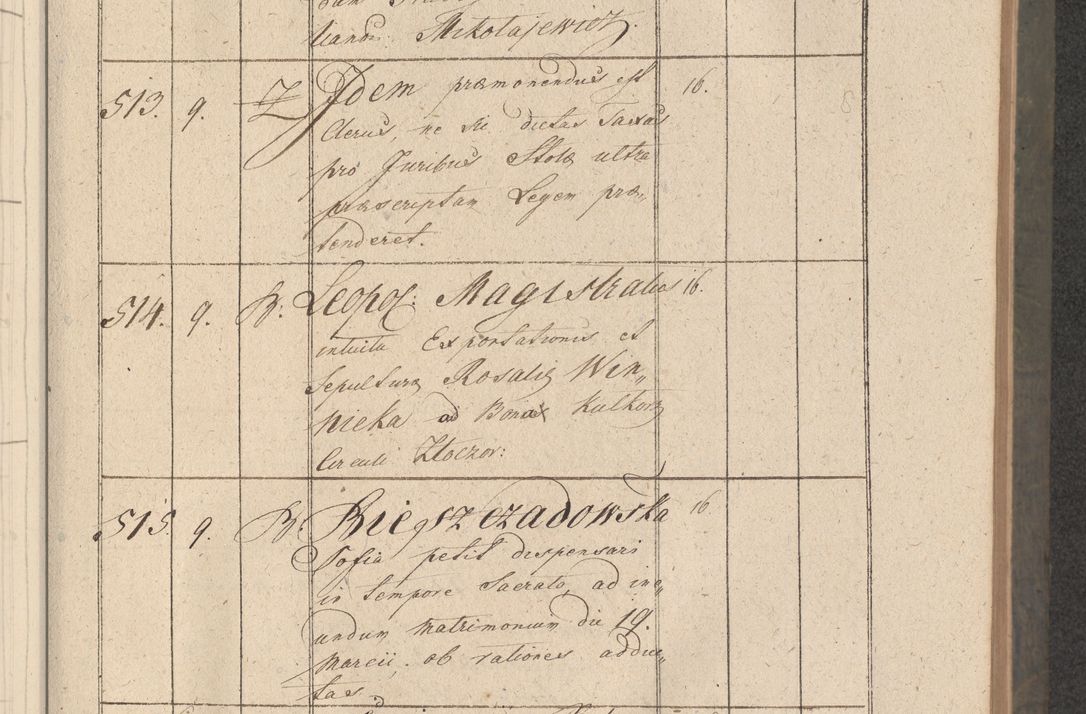 lianou Mikołajewicz.
513. 9. Z Idem præmonendus est 16.
Clerus, ne sibi dictas Taxas
pro Juribus Stolæ ultra
præscriptam Legem præ„
tenderet.
514. 9. B. Leopol: Magistratus 16.
intuitu Exportationis et
Sepulturæ Rosaliæ Win„
nicka ad Bona Kutkorz
Circuli Złoczov:
515. 9. B. Biegszczadowska 16
Sofia petit dispensari
in tempore Sacrato, ad ine„
undum matrimonium die 19.
Marcii, ob rationes adduc„
tas